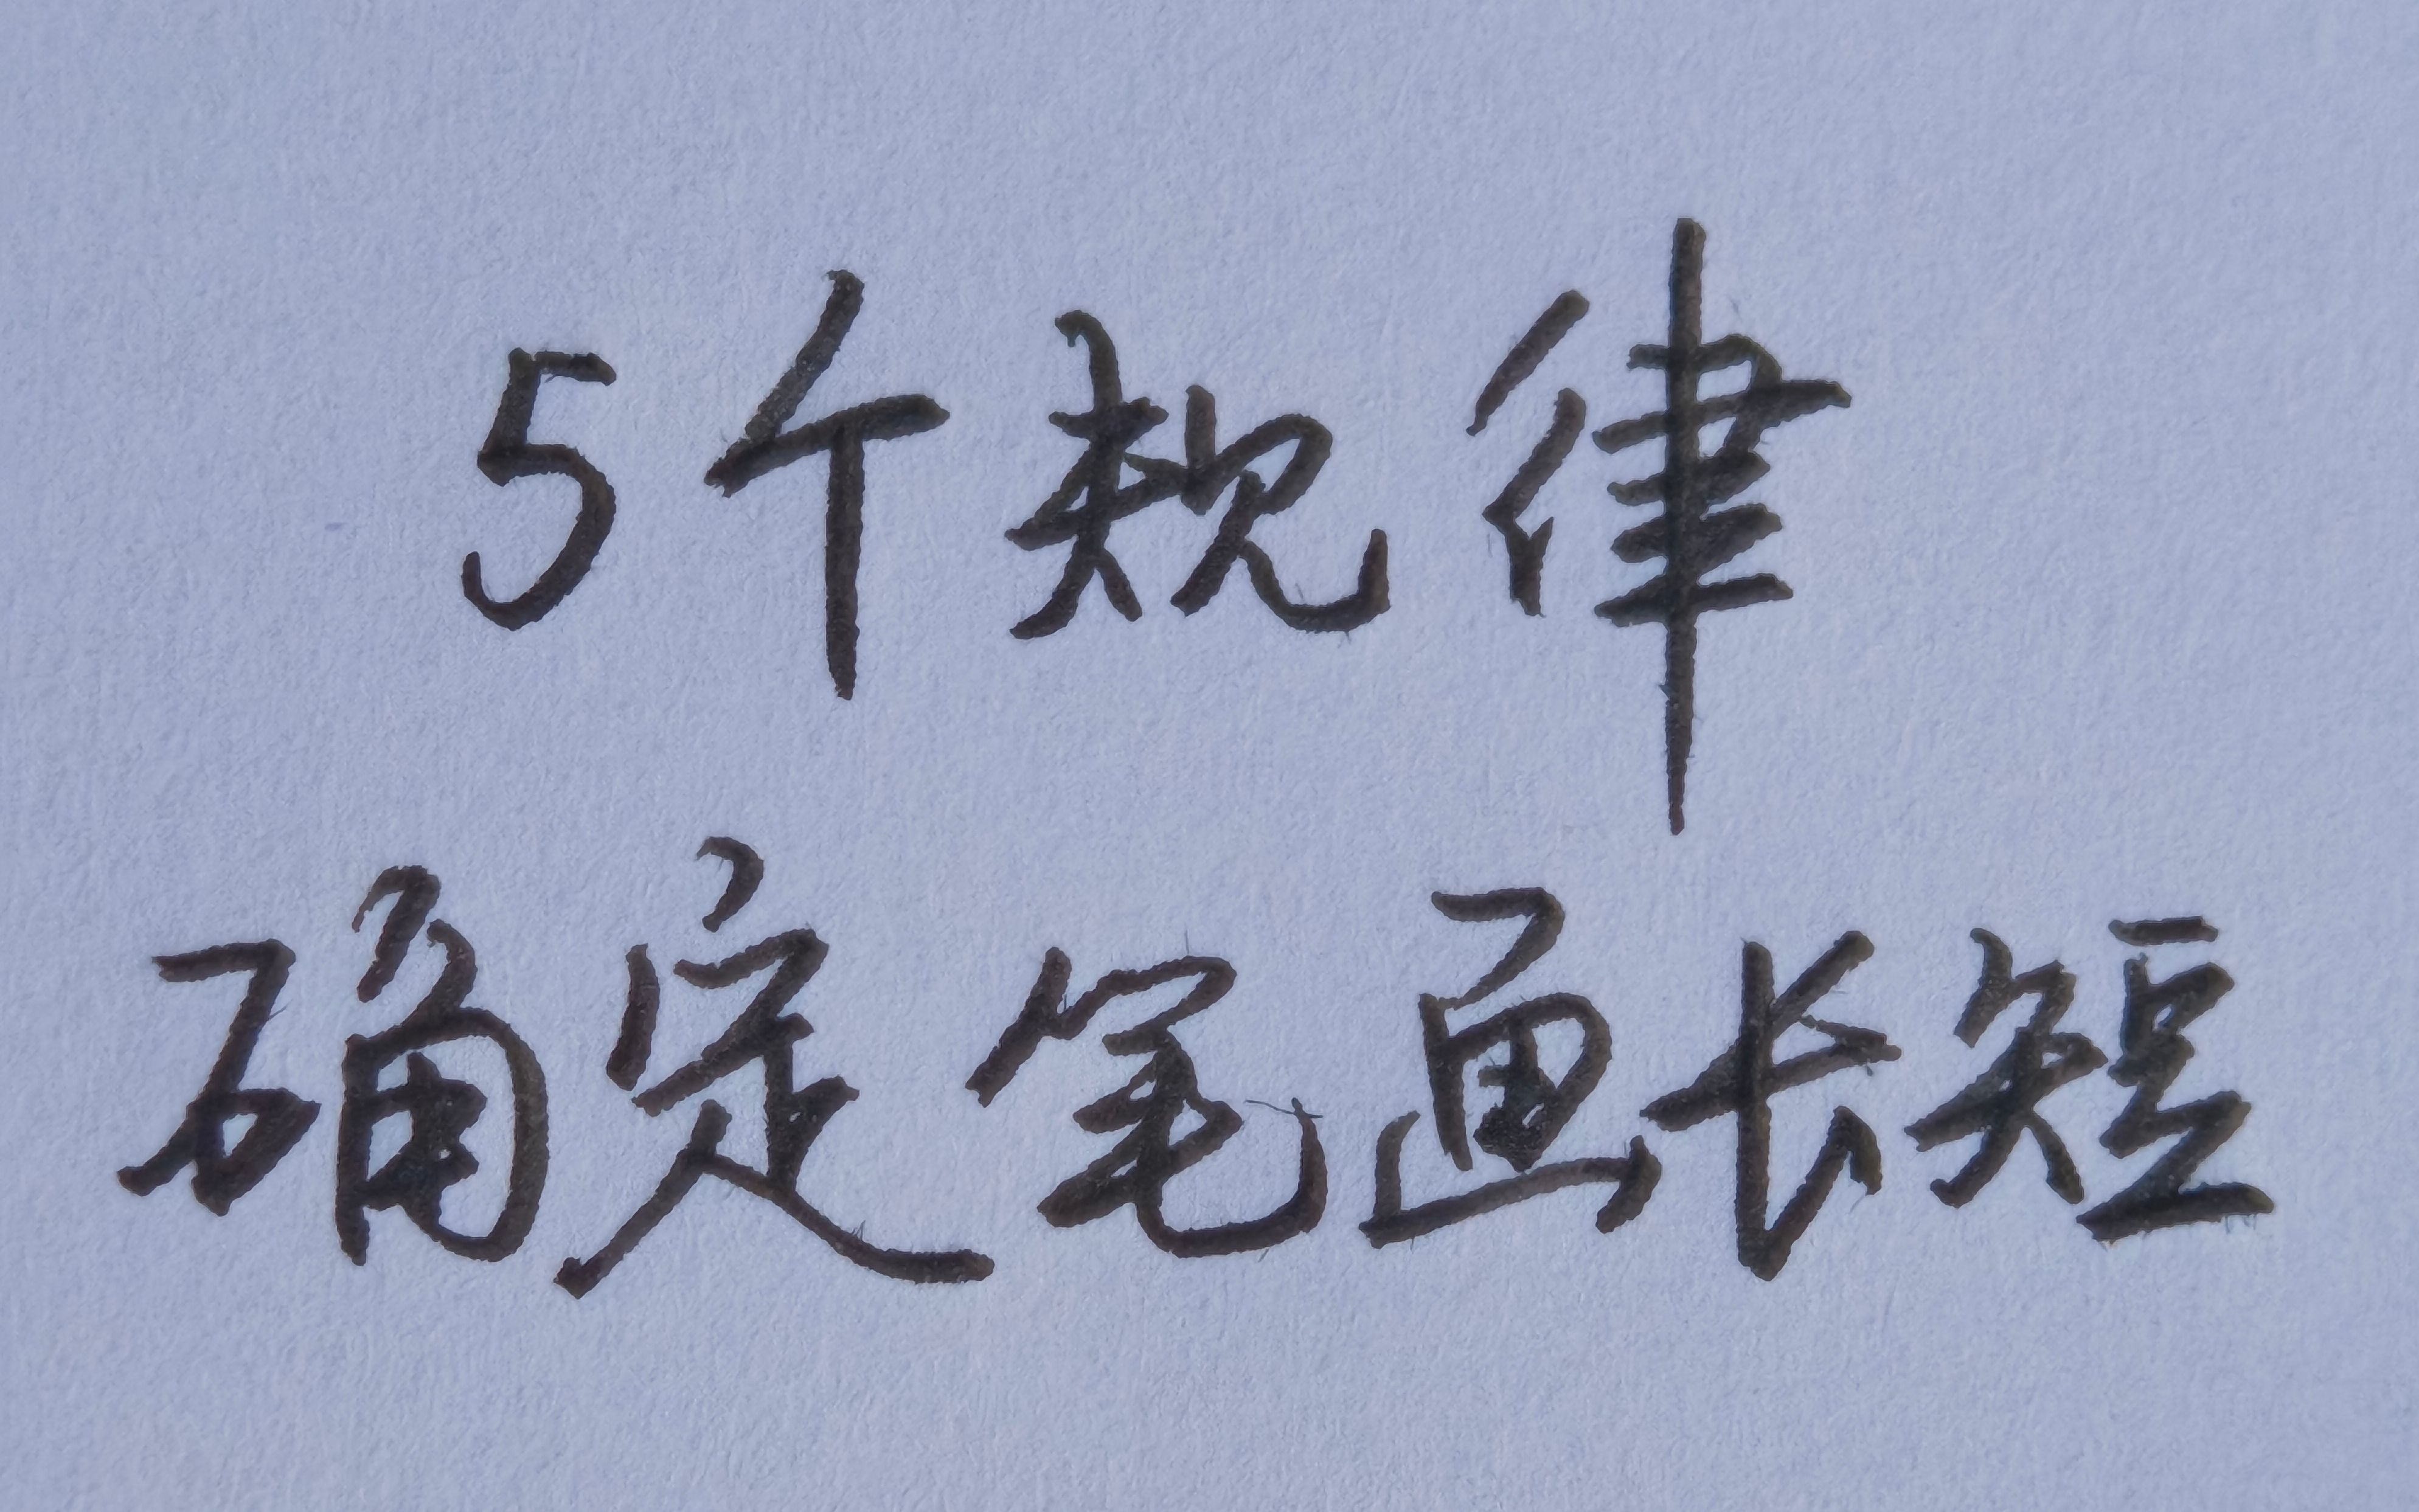 5个规律
确定笔画长短